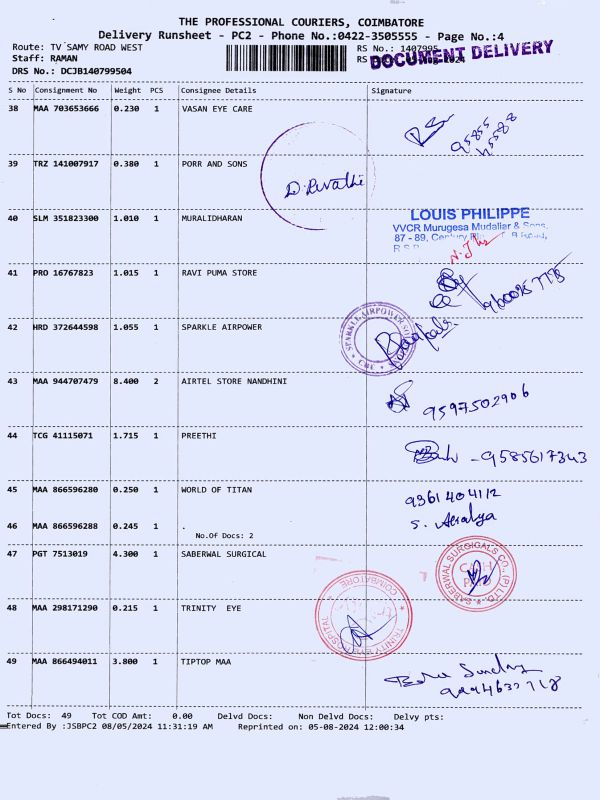 THE PROFESSIONAL COURIERS, COIMBATORE
Delivery Runsheet - PC2 - Phone No.:0422-3505555 - Page No.:4
Route: TV SAMY ROAD WEST
RS No.: 1407995
Staff: RAMAN
RS
DOCUMENT DELIVERY
DRS No.: DCJB140799504
S No Consignment No Weight PCS Consignee Details Signature
38 MAA 703653666 0.230 1 VASAN EYE CARE
39 TRZ 141007917 0.380 1 PORR AND SONS
D. Revathi
40 SLM 351823300 1.010 1 MURALIDHARAN
LOUIS PHILIPPE
VVCR Murugesa Mudaliar & Sons,
87 - 89, Century
41 PRO 16767823 1.015 1 RAVI PUMA STORE
42 HRD 372644598 1.055 1 SPARKLE AIRPOWER
SPARKLE AIRPOWER
CBE
43 MAA 944707479 8.400 2 AIRTEL STORE NANDHINI
9597502906
44 TCG 41115071 1.715 1 PREETHI
- 9585617343
45 MAA 866596280 0.250 1 WORLD OF TITAN
9361404112
46 MAA 866596288 0.245 1 .
No.Of Docs: 2
47 PGT 7513019 4.300 1 SABERWAL SURGICAL
SABERWAL SURGICALS CO., (P) LTD
48 MAA 298171290 0.215 1 TRINITY EYE
TRINITY EYE HOSPITAL COIMBATORE
49 MAA 866494011 3.800 1 TIPTOP MAA
Tot Docs: 49 Tot COD Amt: 0.00 Delvd Docs: Non Delvd Docs: Delvy pts:
Entered By :JSBPC2 08/05/2024 11:31:19 AM Reprinted on: 05-08-2024 12:00:34